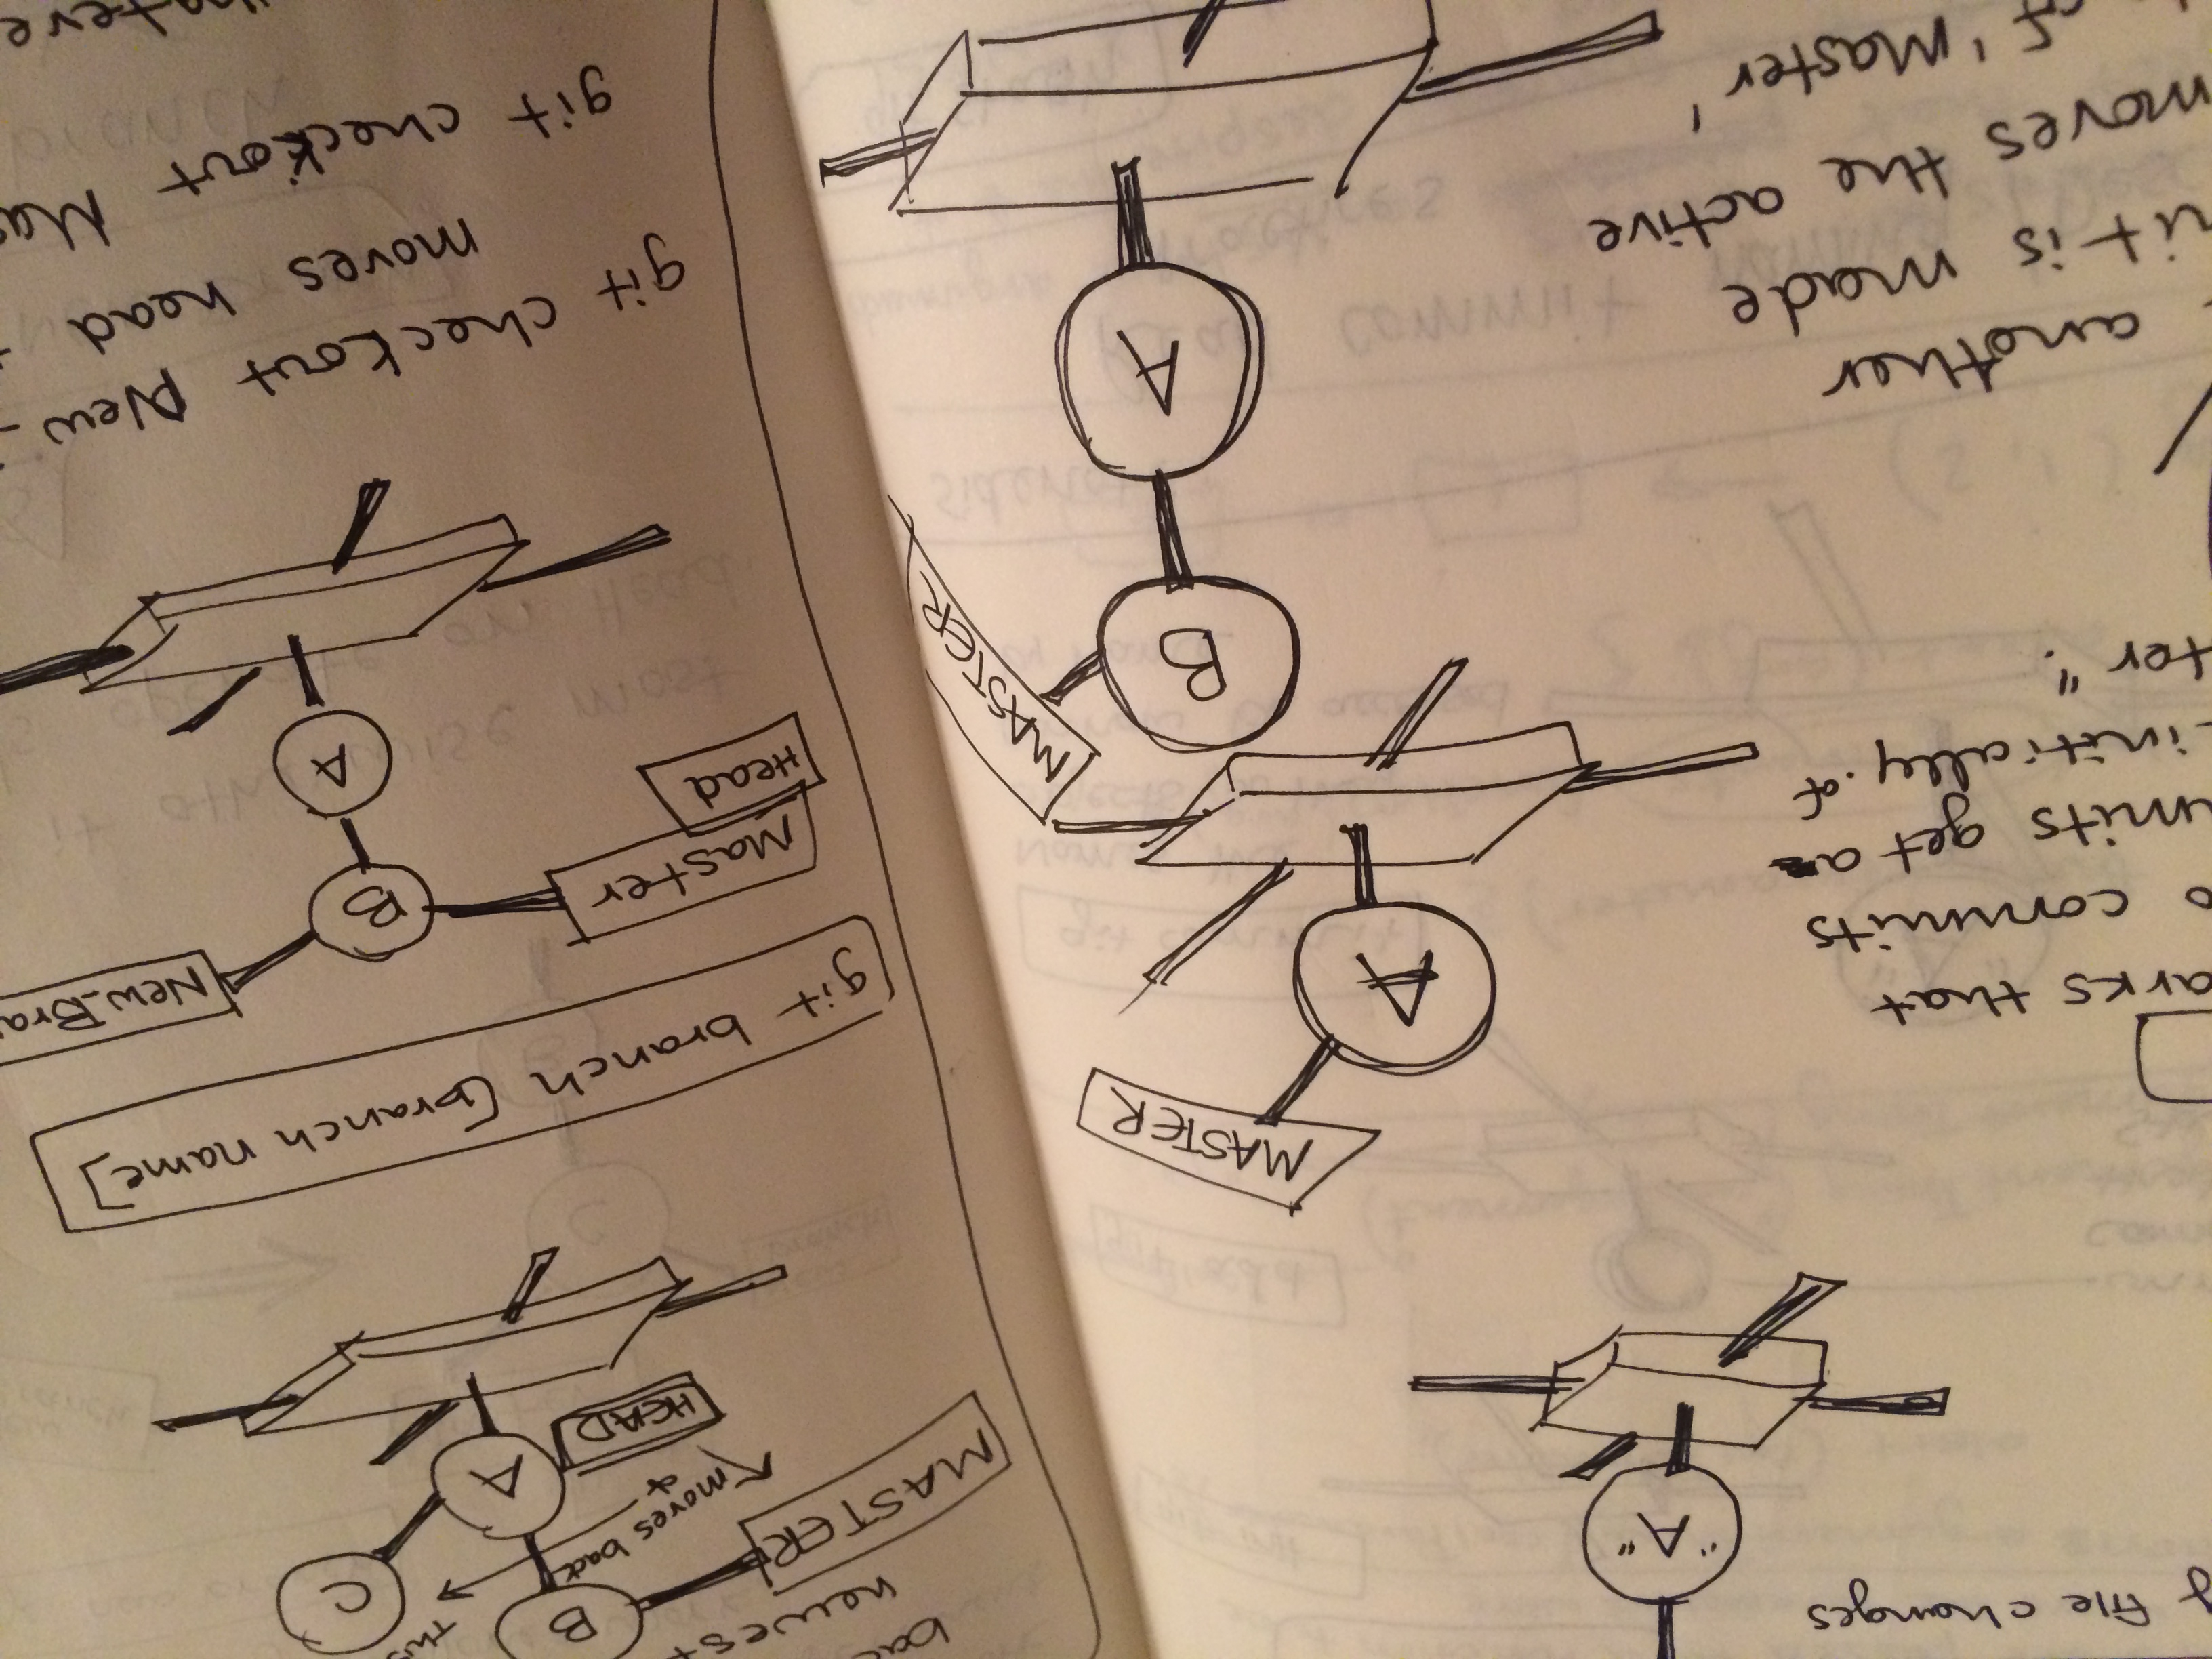 file changes
"A"
MASTER
A
arks that
commits
mits get a
initially of
ter".
B
MASTER
A
another
it is made
moves the active
of 'Master'
bac
newest
B
This
C
MASTER
moves back
&
A
HEAD
git branch [branch name]
New_Bra
Master
B
Head
A
git checkout New_
moves head t
git checkout Mas
hateve